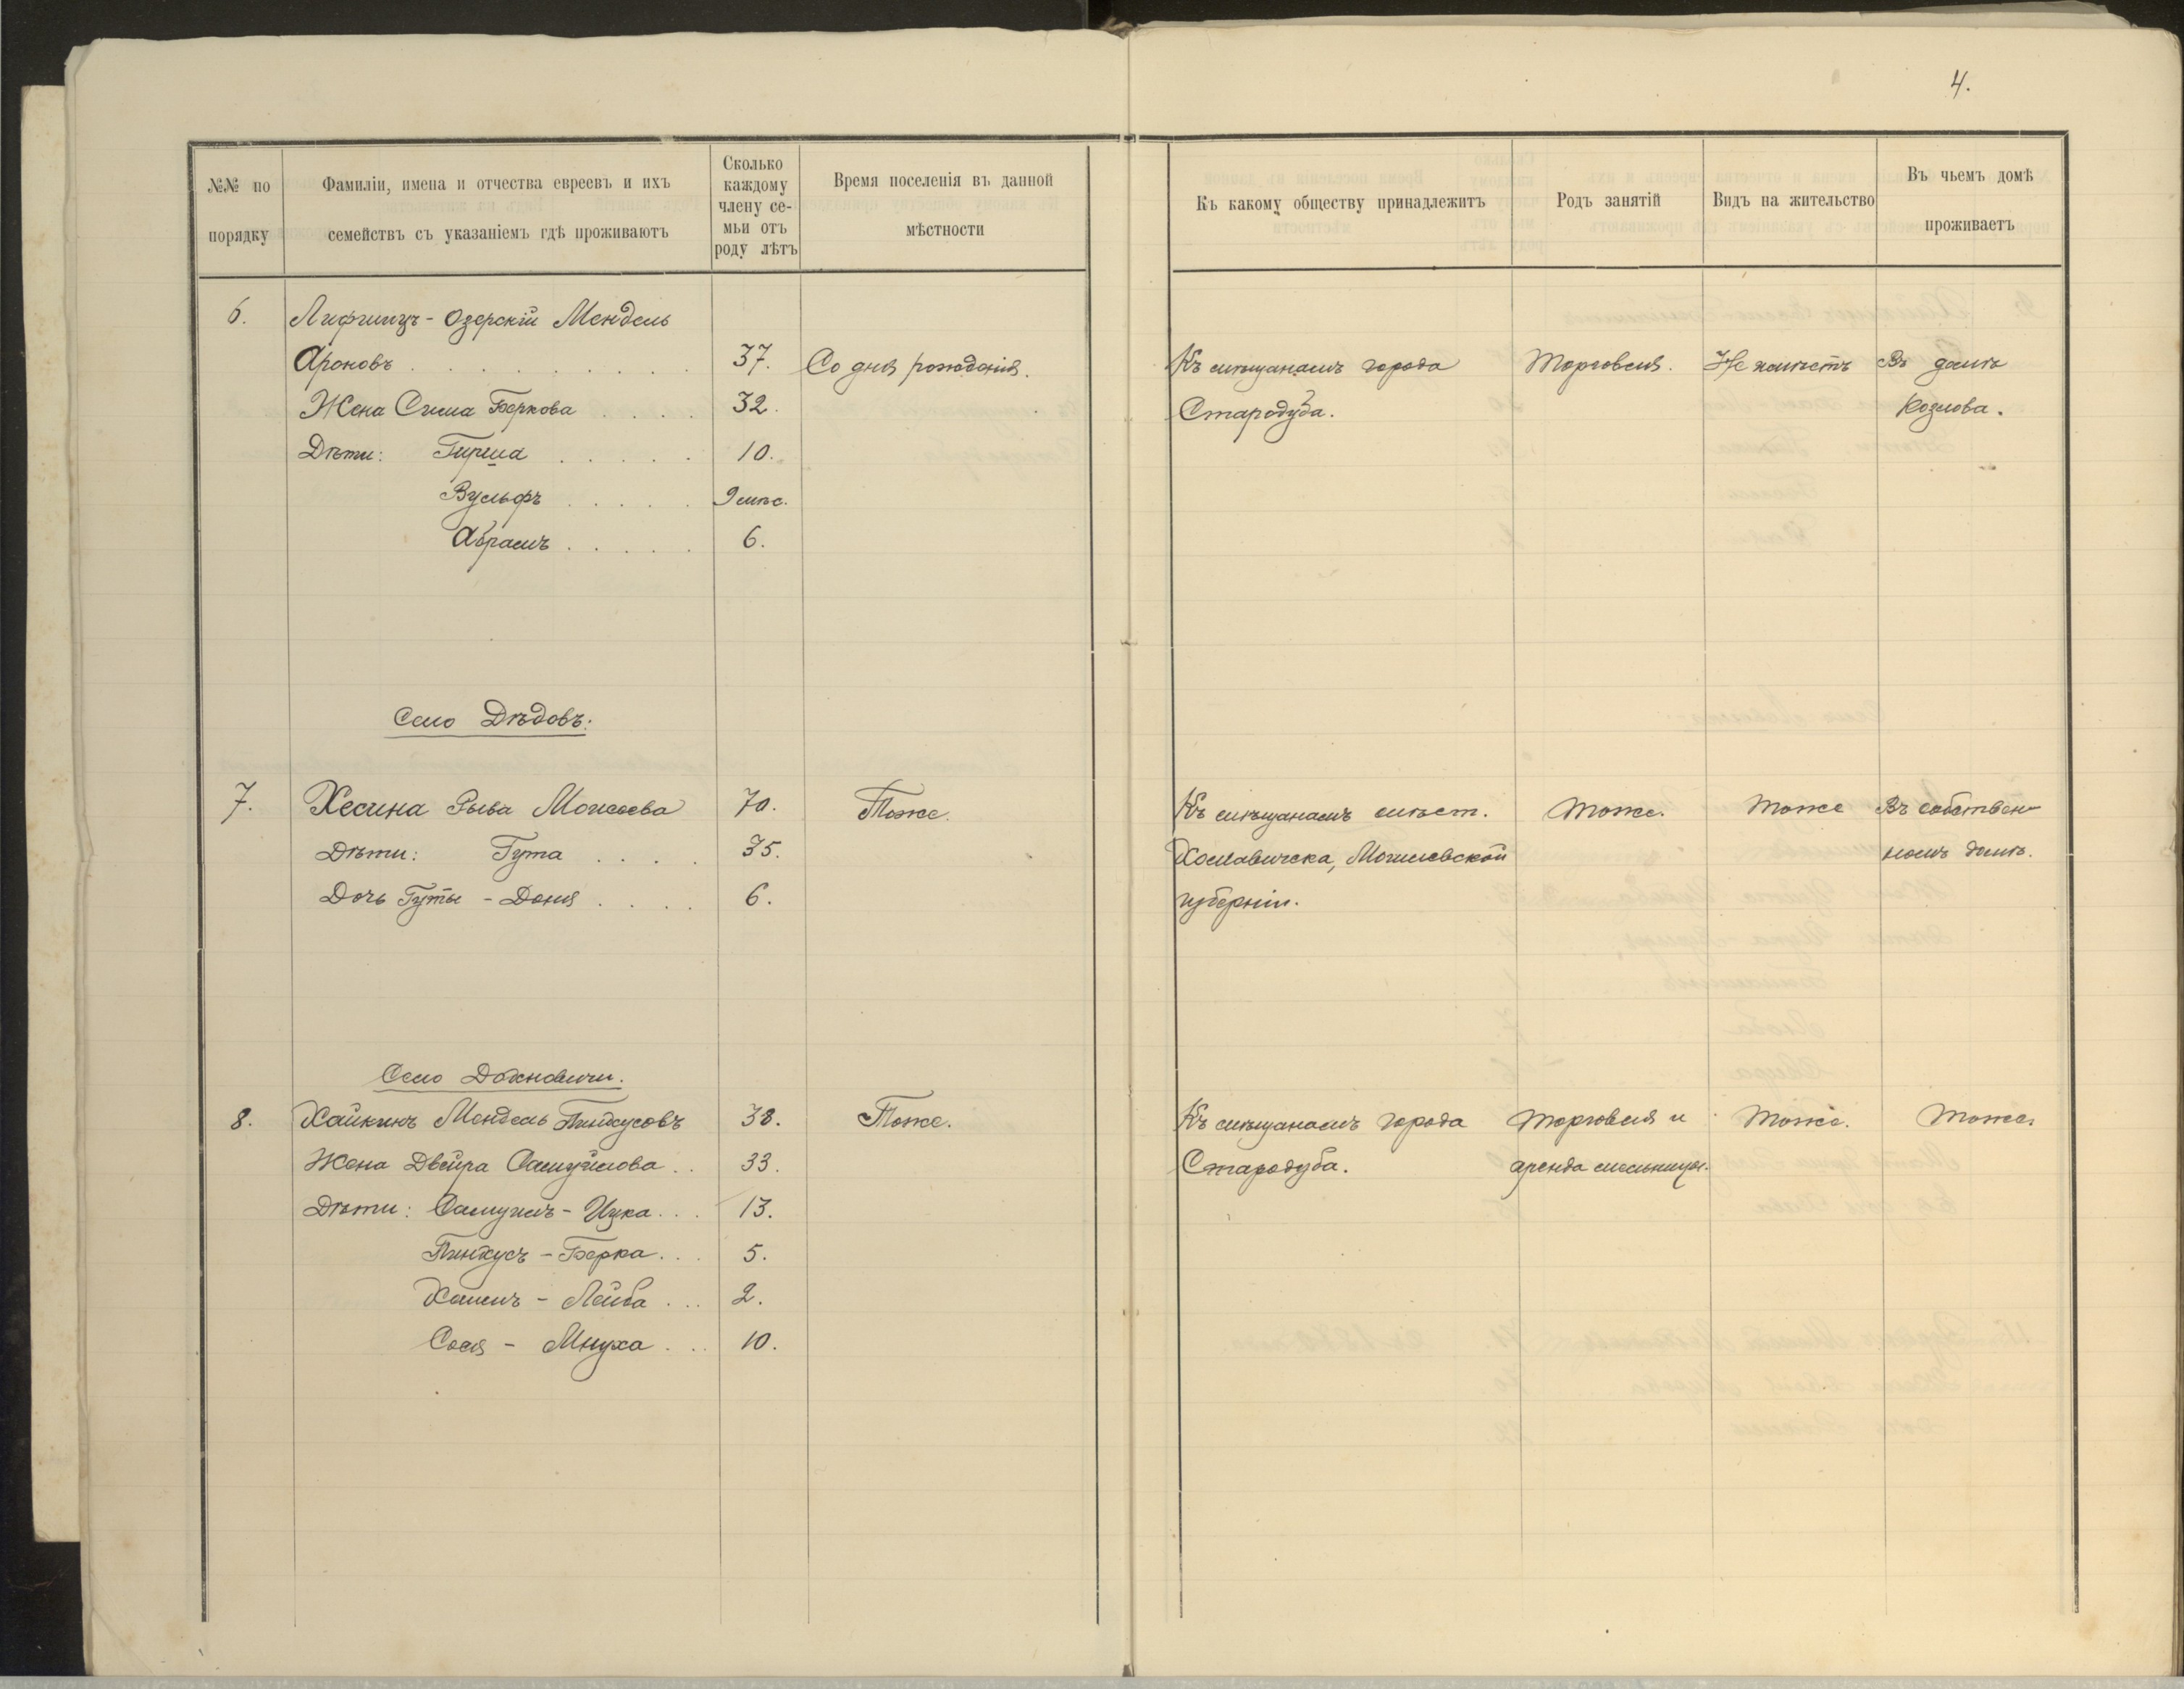 4.
№№ по
порядку
Фамиліи, имена и отчества евреевъ и ихъ
семействъ съ указаніемъ гдѣ проживаютъ
Сколько
каждому
члену се-
мьи отъ
роду лѣтъ
Время поселенія въ данной
мѣстности
Къ какому обществу принадлежитъ
Родъ занятій
Видъ на жительство
Въ чьемъ домѣ
проживаетъ
6. Лифшицъ - Озерскій Мендель
Ароновъ . . . . . . . . . 37. Со дня рожденія. Къ мѣщанамъ города Торговля. Не имѣетъ Въ домѣ
Жена Сима Беркова . . . . 32. Стародуба. Козлова.
Дѣти: Гирша . . . . . 10.
Вульфъ . . . . . 9 мѣс.
Абрамъ . . . . . 6.
Село Дѣдовъ.
7. Хесина Рыва Моисеева 70. Тоже. Къ мѣщанамъ мѣст. Тоже. Тоже Въ собствен-
Дѣти: Гута . . . . 35. Хославичска, Могилевской номъ домѣ.
Дочь Гуты - Доня . . . . 6. губерніи.
Село Дохновичи.
8. Хайкинъ Мендель Пинхусовъ 38. Тоже. Къ мѣщанамъ города Торговля и Тоже. Тоже.
Жена Двейра Самуйлова . . 33. Стародуба. аренда мельницы.
Дѣти: Самуилъ - Ицка . . . 13.
Пинхусъ - Берка . . . 5.
Хаимъ - Лейба . . . 2.
Сося - Мнуха . . . 10.